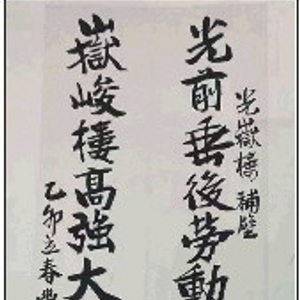 光嶽樓補壁
光前垂後勞動
嶽峻樓高強大
乙卯立春